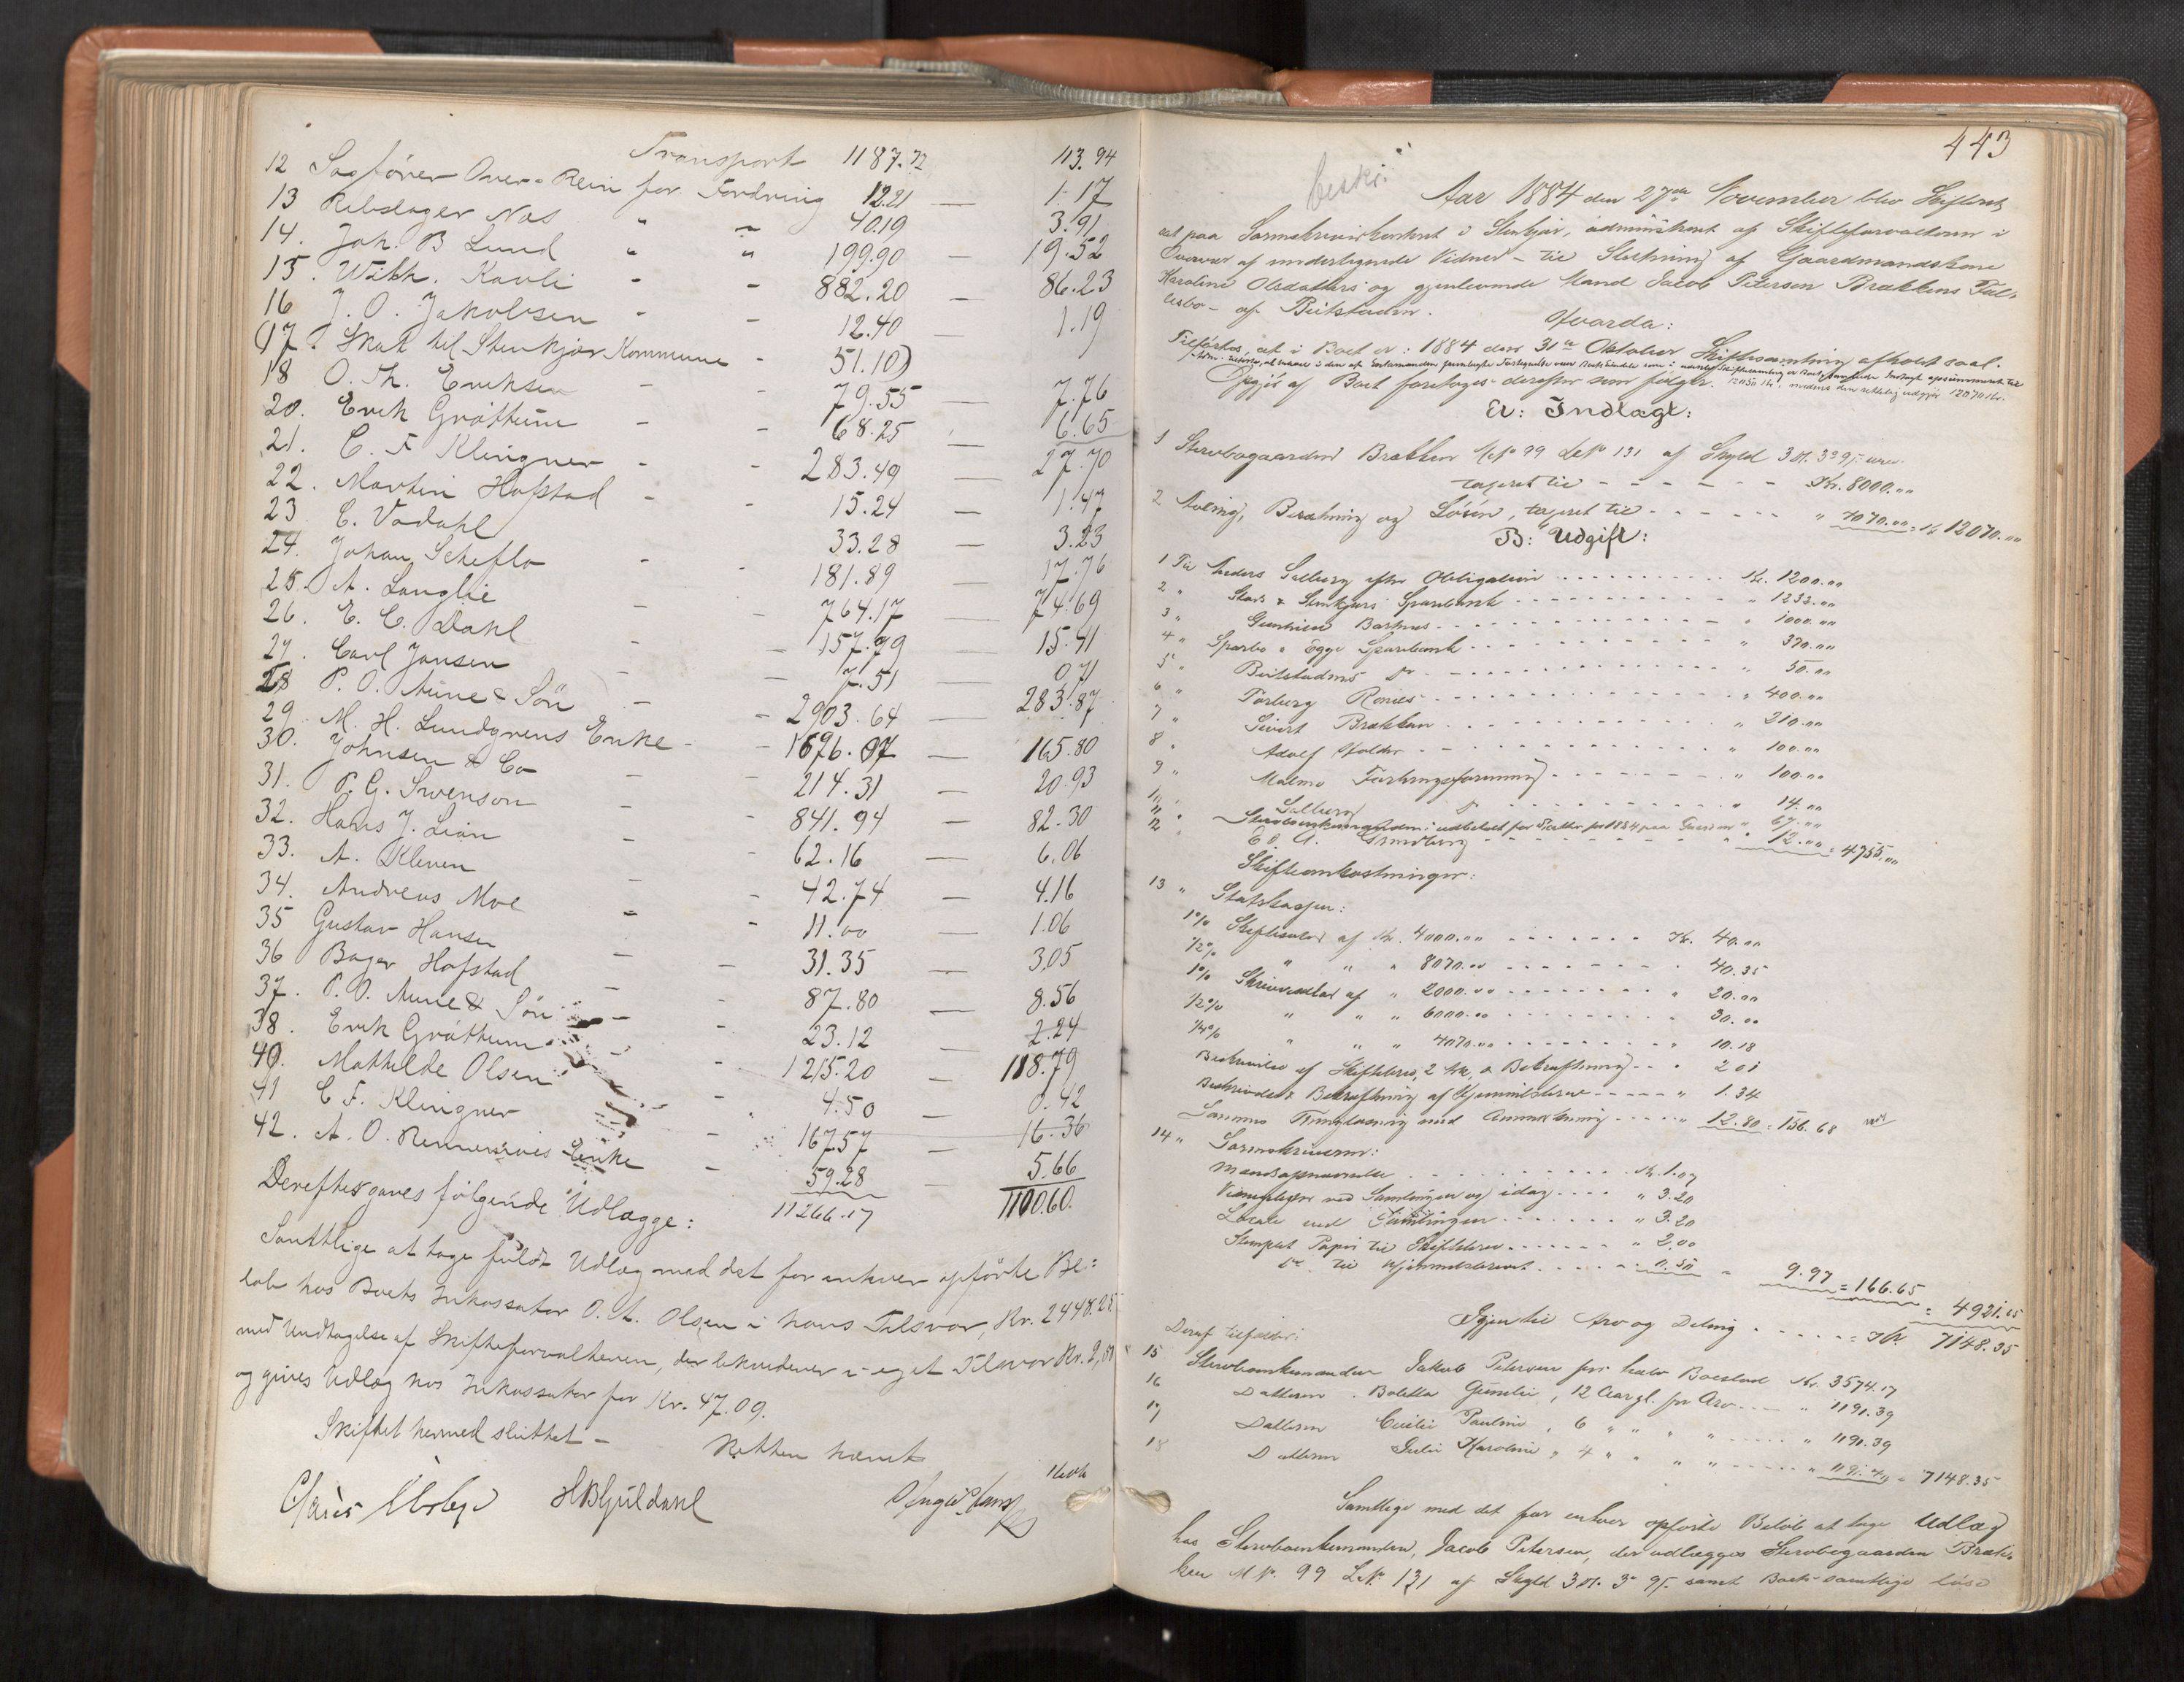 Transport 1187.72 113.94
12 Sagfører Over-Rein for Fordring 12.21 — 1.17
13 Rebslager Næs " " 40.19 3.91
14. Joh. B Lund " " 199.90 — 19.52
15. Wilh. Kavli - - 882.20 — 86.23
16 J. O. Jakobsen - - 12.40 1.19
(17. Skat til Stenkjær Kommune - 51.10)
18 O. Th. Eriksen - - 79.55 — 7.76
20. Erik Grøttum - - 68.25 — 6.65
21. C. F Klingner - - 283.49 27.70
22. Martin Hofstad - - 15.24 — 1.47
23 C. Vodahl 33.28 — 3.23
24. Johan Scheflo - - 181.89 — 17.76
25. A. Langlie - - 764.17 74.69
26. E. C. Dahl - - 157.99 — 15.41
27. Carl Jansen - - 7.51 — 0 71
28 P. O. Aune & Søn - - 2903.64 — 283.87
29. M. H. Lundgrens Enke - - 1696.07 — 165.80
30. Johnsen & Co - 214.31 — 20.93
31. P. G. Svenson - 841.94 — 82.30
32. Hans J. Lian 62.16 — 6.06
33. A. Kleven - 42.74 — 4.16
34. Andreas Moe - - 11.00 — 1.06
35 Gustav Hansen - - 31.35 — 3.05
36 Bager Hofstad - - 87.80 — 8.56
37. P. O. Aune & Søn - - 23.12 — 2.24
38. Erik Grøttum - - 1215.20 — 118.79
40. Mathilde Olsen - 4.50 — 0.42
41 C F. Klingner - 167.57 — 16.36
42. A. O. Enke - 59.28 — 5.66
Derefter gaves følgende Udlægge: 11266.17 1100.60.
Samtlige at tage fuldt Udlæg med det for enhver opførte Be=
løb hos Boets Inkassator O. A. Olsen i hans Tilsvar, Kr. 2448.25
med Undtagelse af Skifteforvalteren, der likviderer i eget Tilsvar Kr.
og gives Udlæg hos Inkassator for Kr. 47.09.
Skiftet hermed sluttet —
Retten hævet
HBGjuldahl
443
beskr.
Aar 1884 den 27de November blev Skifteret
sat paa Sorenskriverkontoret i Stenkjær, administreret af Skifteforvalteren i
Overvær af undertegnede Vidner - til Slutning af Gaardmandskone
Karoline Olsdatters og gjenlevende Mand Jacob Petersen Brækkens Fæl-
lesbo - af Beitstaden.
Hvorda:
Tilførtes, at i Boet er: 1884 den 31te Oktober Skiftesamling afholdt saal.
Opgjør af Boet foretages derefter som følger.
A: Indtægt:
1 Stervbogaarden Brækken M.No 99 L.No 131 af Skyld 3 Dl. 3 Ort 9 ß
taxeret til - - - - - - Kr. 8000.00
2 Avling, Besætning og Løsøre, taxeret til - - - - - - " 4070.00 = Kr 12070.00
B: Udgift:
1 Til Anders Solberg efter Obligation - - - - - Kr. 1200.00
2 " Stod & Stenkjærs Sparebank - - - - - " 1232.00
3 " - - - - - " 1000.00
4 " Sparbo & Egge Sparebank - - - - - " 370.00
5 " Beitstadens do - - - - - " 50.00
6 " Torberg - - - - - " 400.00
7 " Sivert Brækken - - - - - " 310.00
8 " Adolf - - - - - " 100.00
9 " Malmo - - - - - " 100.00
10 " Solberg do - - - - - " 14.00
11 " Stervboenkemanden: udbetalt for Skatter for 1884 paa Gaarden " 67.00
12 " - - - - - " 12.00 = 4755.00
Skifteomkostninger:
13 " Statskassen:
1 % Skiftesalær af Kr. 4000.00 - - - - - Kr. 40.00
1/2 % " " " 8070.00 - - - - - " 40.35
1 % Skriversalær af " 2000.00 - - - - - " 20.00
1/2 % " " " 6000.00 - - - - - " 30.00
1/4 % " " " 4070.00 - - - - - " 10.18
Beskrivelse af Skiftebrev, 2 Ark, & Bekræftning - - " 2 01
Beskrivelse & Bekræftning af Hjemmelsbrev - - - " 1.34
Sammes Thinglæsning med Anmærkning - - - " 12.80 = 156.68
14 " Sorenskriveren:
Mandsopnævnelse - - - - - Kr. 1.07
Vidnepenger ved Samlingen og idag - - - " 3.20
Locale ved Samlingen - - - - - " 3.20
Stemplet Papir til Skiftebrev - - - - - " 2.00
do til Hjemmelsbrevet - - - - - " 0.50 = 9.97 = 166.65 = 4921.65
Igjen til Arv og Deling - - - - - = Kr. 7148.35
Deraf tilfalder:
15 Stervboenkemanden Jakob Petersen for halv Boeslod Kr. 3574.17
16 Datteren Boletta , 12 Aar gl. for Arv - - - " 1191.39
17 Datteren Cecilie Pauline , 6 " " " " - - - " 1191.39
18 Datteren Julie Karoline , 4 " " " " - - - " 1191.40 = 7148.35
Samtlige med det for enhver opførte Beløb at tage Udlæg
hos Stervboenkemanden, Jacob Petersen, der udlægges Stervbogaarden Bræk-
ken M No. 99 L.No. 131 af Skyld 3 Dl. 3 Ort 9 ß. samt Boets samtlige løse